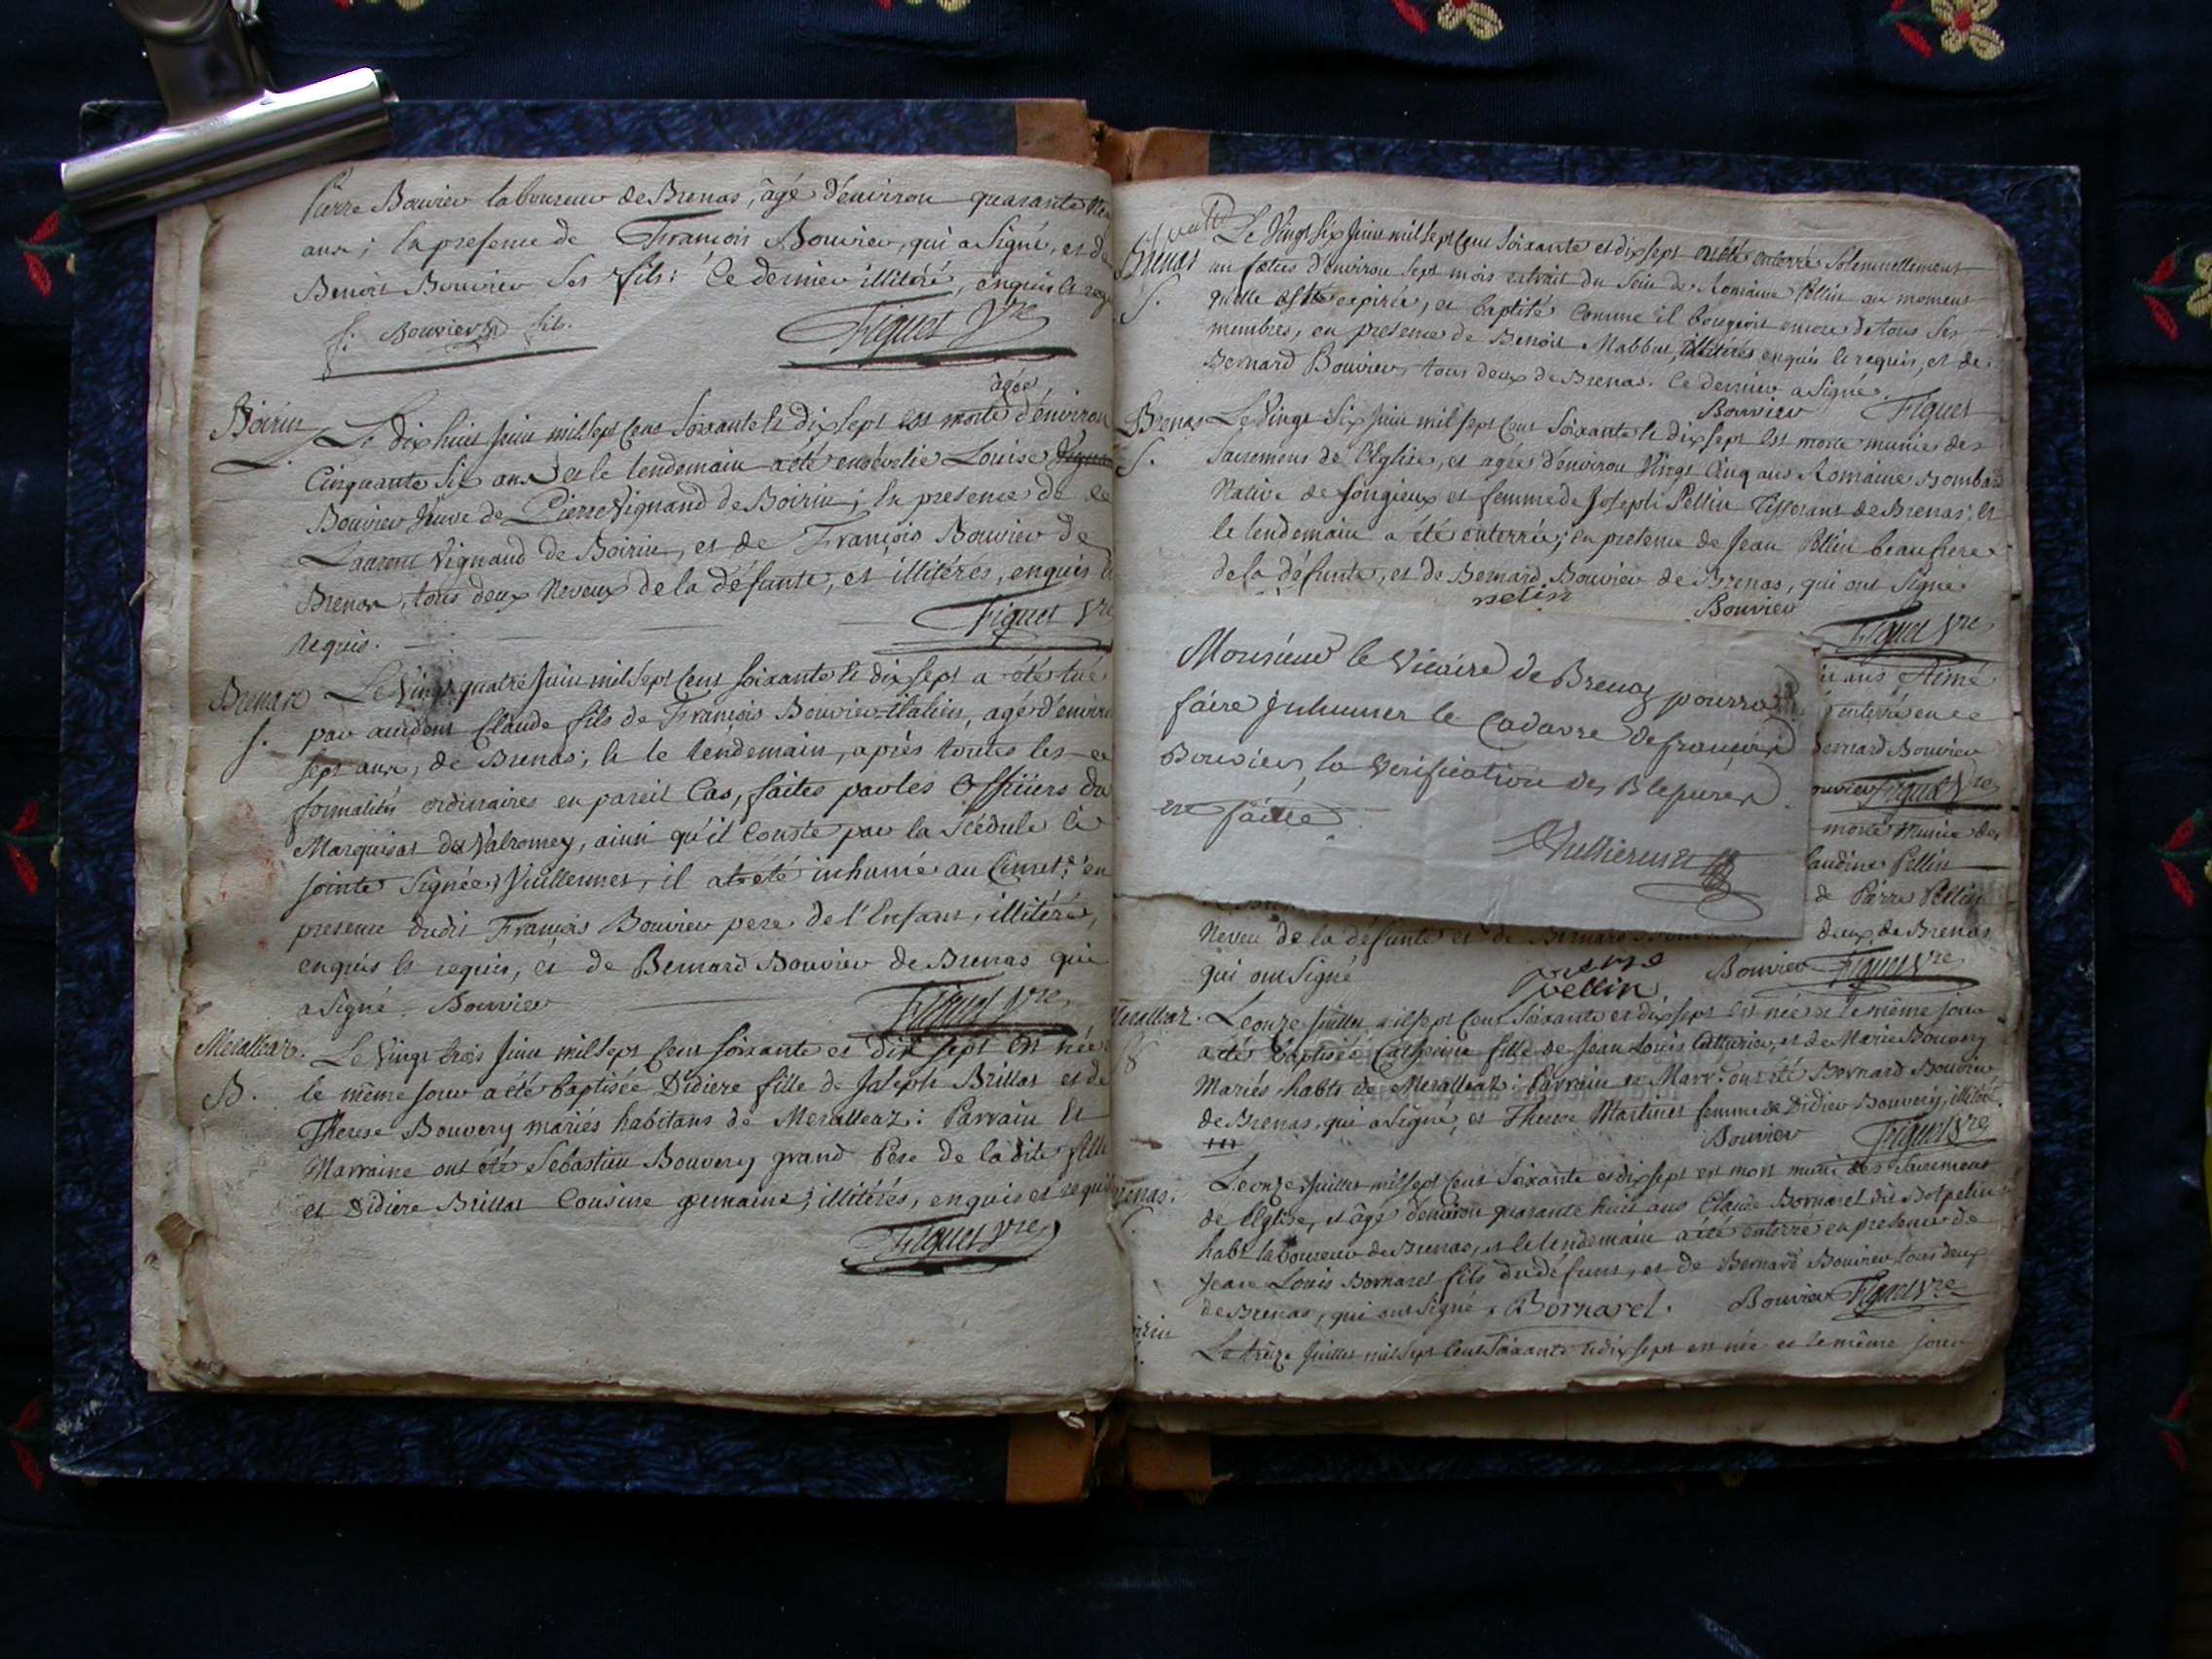 Pierre Bouvier laboureur de Brenas, âgé d'environ quarante
ans; En presence de François Bouvier, qui a signé, et de
Benoit Bouvier ses fils: Ce dernier illitéré, enquis et requis
f. Bouvier fils.
Figuet Vre
âgée,
Boirin
Le dix huit Juin mil sept cent soixante et dix sept est morte d'environ
S.
Cinquante six ans et le lendemain a été ensevelie Louise
Bouvier veuve de Pierre Vignand de Boirin; En presence de
Laurent Vignand de Boirin, et de François Bouvier de
Brenas, tous deux Neveux de la défunte, et illitérés, enquis et
requis.
Figuet Vre
Brenas
Le Vingt quatre Juin mil sept cent soixante et dix sept a été tué
S.
par accident Claude fils de François Bouvier, agé d'environ
sept ans, de Brenas; et le lendemain, après toutes les
formalités ordinaires en pareil Cas, faites par les Officiers du
Marquisat du Valromey, ainsi qu'il Conste par la scédule ci
jointe signée Vuillermet, il a été inhumé au Cimet.e en
presence dudit François Bouvier pere de l'Enfant, illitéré,
enquis et requis, et de Bernard Bouvier de Brenas qui
a signé. Bouvier
Figuet Vre
Meralleaz.
Le Vingt trois Juin mil sept cent soixante et dix sept est née
B.
le même jour a été baptisée Didiere fille de Joseph Brillat et de
Therese Bouvery mariés habitans de Meralleaz: Parrain et
Marraine ont été Sebastien Bouvery grand Père de la dite fille
et Didiere Brillat Cousine germaine, illitérés, enquis et requis
Figuet Vre
Le Vingt six Juin mil sept cent soixante et dix sept a été enterré solemnellement
Brenas
un fœtus d'environ sept mois extrait du sein de Romaine Pellin au moment
S.
qu'elle est expirée, et baptisé Comme il bougeoit encore de tous ses
membres, en presence de Benoit Mabbut, illitéré, enquis et requis, et de
Bernard Bouvier, tous deux de Brenas. Ce dernier a signé.
Bouvier Figuet
Brenas
Le Vingt six Juin mil sept cent soixante et dix sept est morte munie des
S.
sacremens de l'Eglise, et agée d'environ Vingt Cinq ans Romaine Bombard
Native de Jongieux et femme de Joseph Pellin Tisserant de Brenas; Et
le lendemain a été enterrée; en presence de Jean Pellin beaufrere
de la défunte, et de Bernard Bouvier de Brenas, qui ont signé
pelin Bouvier
Figuet Vre
Monsieur le Vicaire de Brenaz pourra
faire Inhumer le Cadavre de françois
Bouvier, la verification des Blessures
en faitte.
Vuillermet
ans Aimé
enterré en
Bernard Bouvier
Bouvier Figuet Vre
morte munie des
Claudine Pellin
de Pierre Pellin
Neveu de la défunte et de Bernard deux de Brenas
qui ont signé
pierre pellin Bouvier Figuet Vre
Meralleaz.
Le onze Juillet mil sept cent soixante et dix sept est née et le même jour
B
a été baptisée Catherine fille de Jean Louis et de Marie Bouvery
Mariés habts de Meralleaz: Parrain et Marr.e ont été Bernard Bouvier
de Brenas, qui a signé, et Therese Martinet femme de Didier Bouvery, illitéré.
Bouvier Figuet Vre
Brenas.
Le onze Juillet mil sept cent soixante et dix sept est mort muni des sacremens
de l'Eglise, et âgé d'environ quarante huit ans Claude Bornarel dit
habt laboureur de Brenas, et le lendemain a été enterré en presence de
Jean Louis Bornarel fils du defunt, et de Bernard Bouvier, tous deux
de Brenas, qui ont signé. Bornarel. Bouvier Figuet Vre
Le treize Juillet mil sept cent soixante et dix sept est née et le même jour